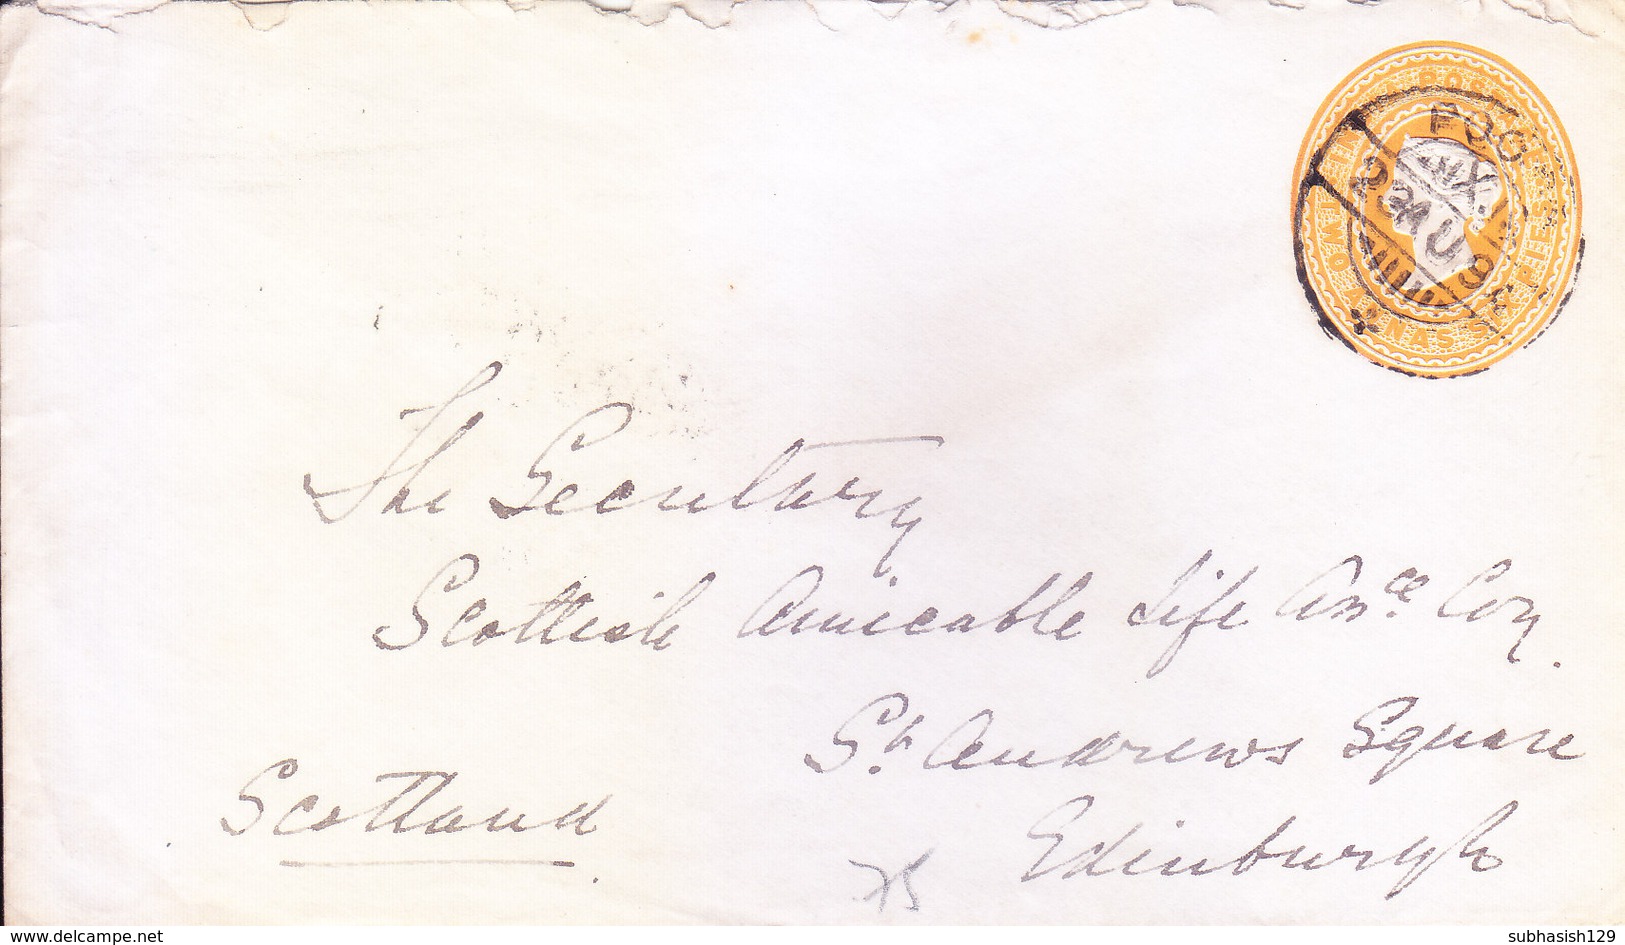 TWO ANNAS SIX PIES
The Secretary
Scottish Amicable Life Assce Coy.
St. Andrews Square
Edinburgh
Scotland
75
www.delcampe.net
subhasish129